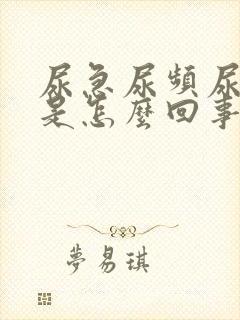 尿急尿頻尿
是怎麼回事
夢易琪